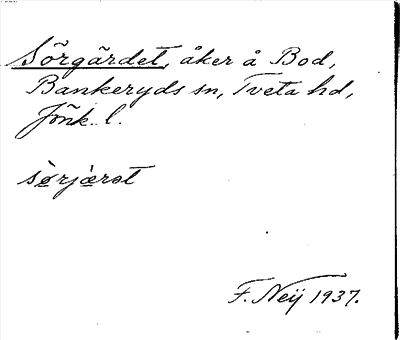 Sörgärdet, åker å Bod,
Bankeryds sn, Tveta hd,
Jönk. l.
sòrjæ̀rət
F. Neij 1937.